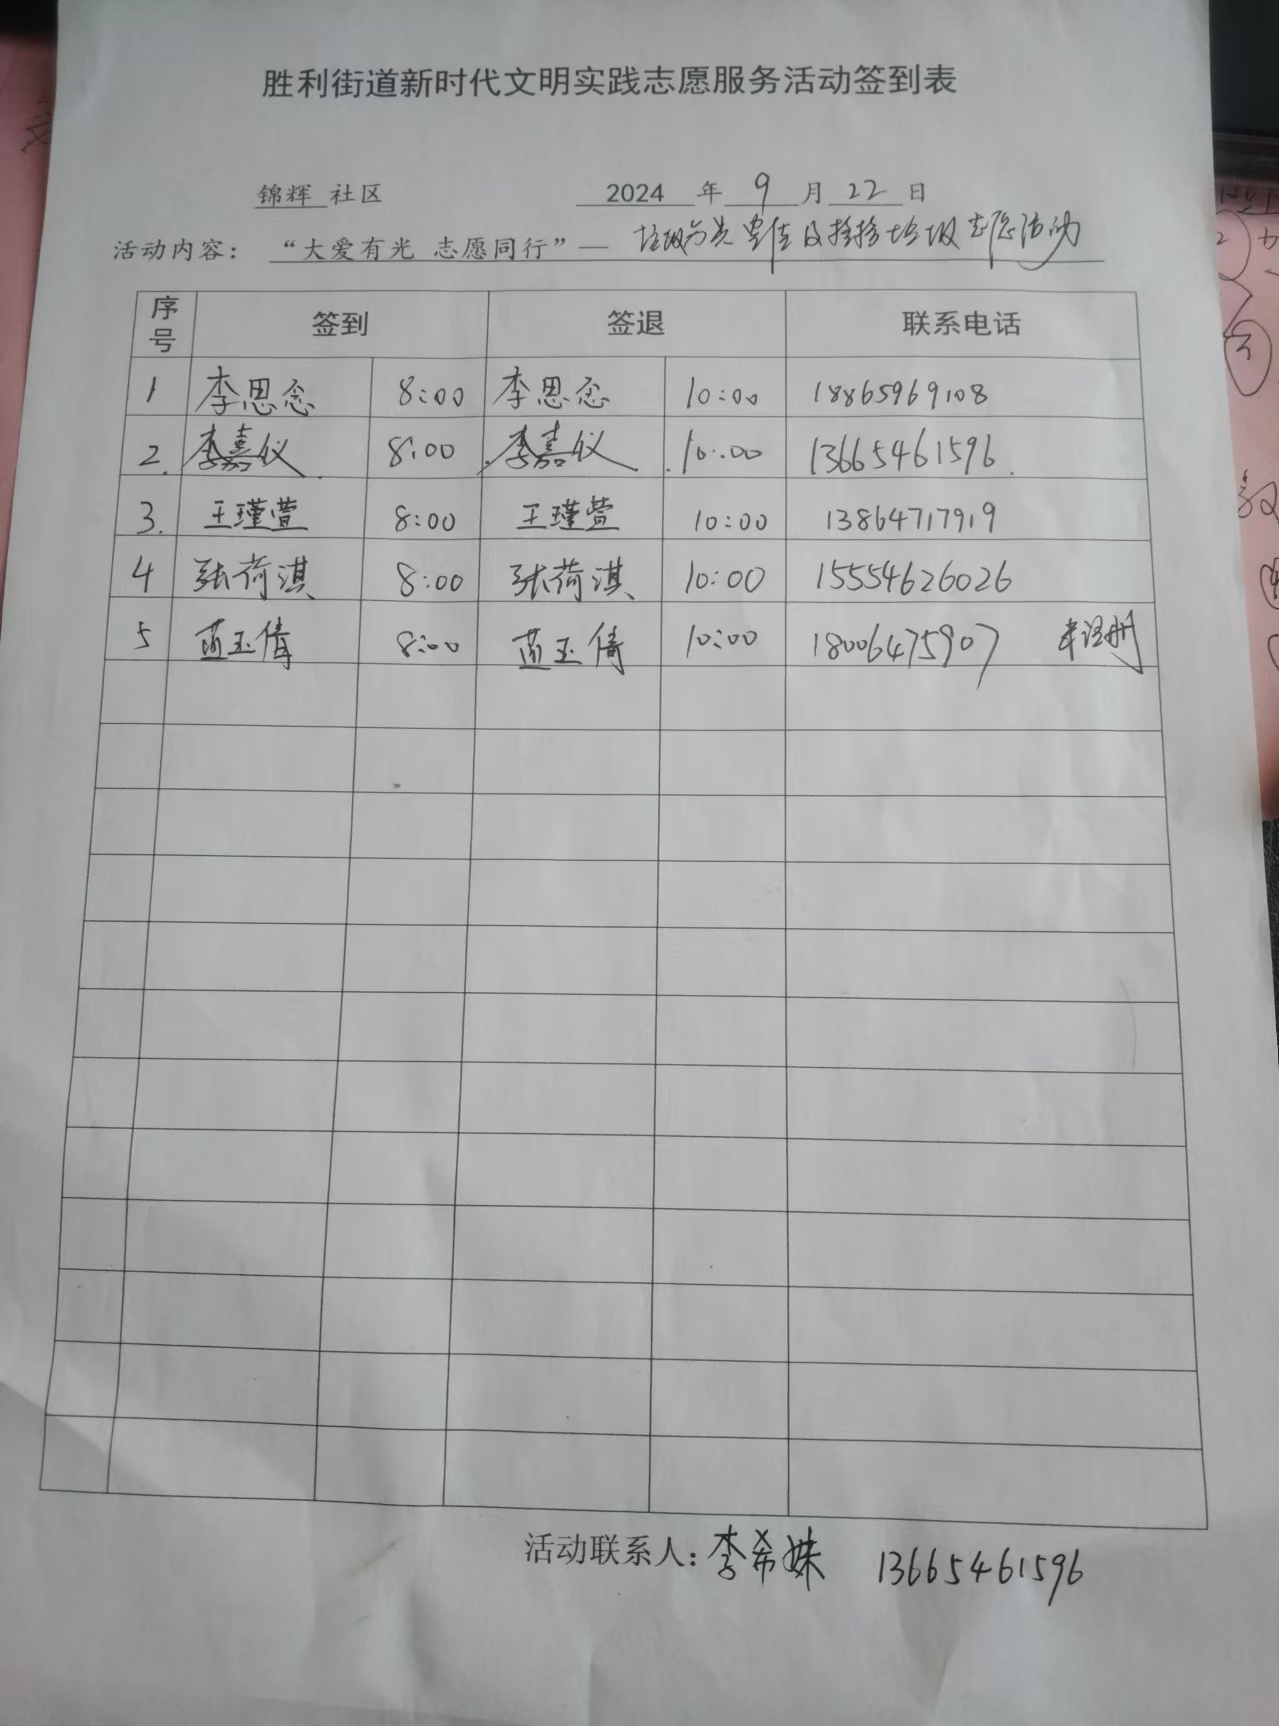 胜利街道新时代文明实践志愿服务活动签到表
锦辉 社区 2024 年 9 月 22 日
活动内容：“大爱有光 志愿同行”— 垃圾分类宣传及捡拾垃圾志愿活动
序号 签到 签退 联系电话
1 李思念 8:00 李思念 10:00 18865969108
2. 李嘉仪 8:00 李嘉仪 10:00 13665461596
3. 王瑾萱 8:00 王瑾萱 10:00 13864717919
4 张荷淇 8:00 张荷淇 10:00 15554626026
5 蓝玉倩 8:00 蓝玉倩 10:00 18006475907 未注册
活动联系人：李希姝 13665461596